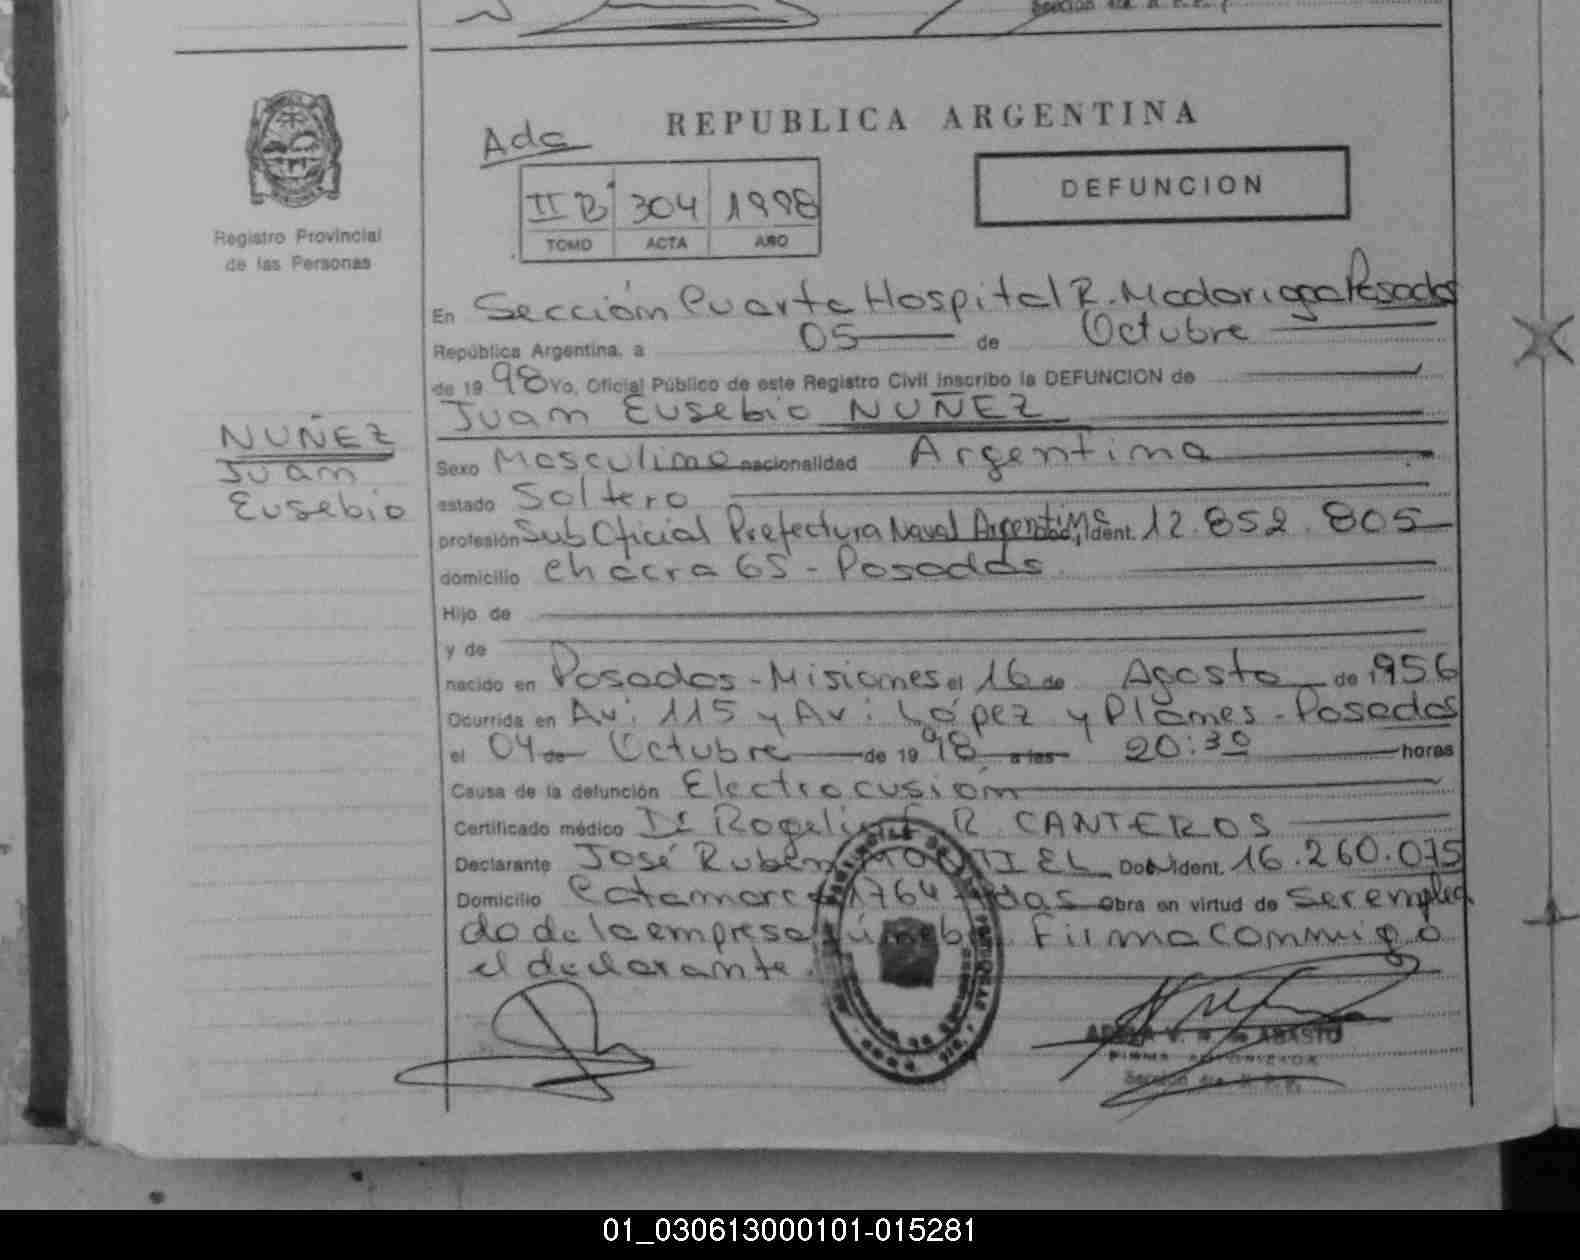 Sección 4ta. R. P. P.
REPUBLICA ARGENTINA
Ada
DEFUNCION
II B 304 1998
TOMO ACTA AÑO
Registro Provincial
de las Personas
En Sección Cuarta Hospital R. Madariaga Posadas
República Argentina, a 05 de Octubre
de 19 98 Yo, Oficial Público de este Registro Civil inscribo la DEFUNCION de
Juan Eusebio NUÑEZ
NUÑEZ
Juan
Eusebio
Sexo Masculino nacionalidad Argentina
estado Soltero
profesión Sub Oficial Prefectura Naval Argentina Doc. Ident. 12.852.805
domicilio chacra 65 - Posadas
Hijo de
y de
nacido en Posadas - Misiones el 16 de Agosto de 1956
Ocurrida en Av: 115 y Av: López y Planes - Posadas
el 04 de Octubre de 19 98 a las 20:30 horas
Causa de la defunción Electrocusión
Certificado médico Dr Rogelio R. CANTEROS
Declarante José Ruben MONTIEL Doc. Ident. 16.260.075
Domicilio Catamarca 1764 Pdas obra en virtud de ser emplea
do de la empresa fúnebre. Firma conmigo
el declarante.
V. R. de ABASTO
FIRMA AUTORIZADA
Sección 4ta. R. P. P.
01_030613000101-015281